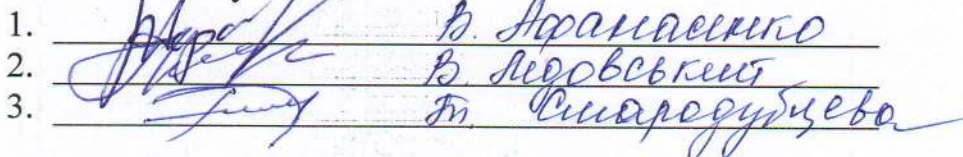 1. В. Афанасенко
2. В. Лідовський
3. Т. Стародубцева